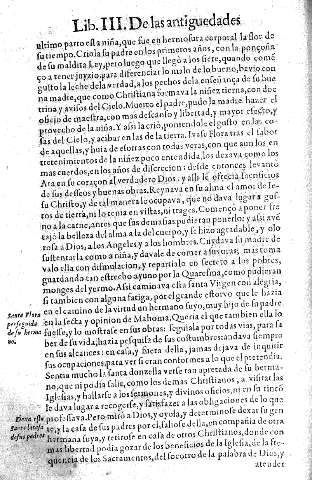 Lib. III. De las antiguedades
ultimo parto esta niña, que fue en hermosura corporal la flor de
su tiempo. Criola su padre en los primeros años, con la ponçoña
de su maldita ley, pero luego que llegò a los siete, quando come
çò a tener juyzio, para diferenciar lo malo de lo bueno, bevio con
gusto la leche de la verdad, a los pechos de la enseñança de su bue
na madre, que como Christiana formava la niñez tierna, con doc
trina y avisos del Cielo. Muerto el padre, pudo la madre hazer el
oficio de maestra, con mas descanso y libertad, y mayor efecto, y
provecho de la niña. Y assi la criò, poniendole el gusto en las co-
sas del Cielo, y acibar en las de la tierra. Ivase Flora tras el sabor
de aquellas, y huia de essotras con todas veras, con que aun los en
tretenimientos de la niñez poco entendida, los dexava como los
mas cuerdos, en los años de discrecion: desde entonces levantò
Ara en su coraçon al verdadero Dios: y alli le ofrecia sacrificios
de sus desseos y buenas obras. Reynava en su alma el amor de Ie-
su Christo, y de tal manera lo ocupava, que no dava lugar a gus-
tos de tierra, ni lo tenia en vistas, ni trages. Començò a poner fre
no a la carne, antes que sus demasias pudieran ponerlo: y assi avē
tajò la belleza del alma a la del cuerpo, y se hizo agradable, y olo
rosa a Dios, a los Angeles y a los hombres. Cuydava su madre de
sustentarla como a niña, y davale de comer a sus horas, mas toma
valo ella con dissimulacion, y repartialo en secreto a los pobres,
guardando tan estrecho ayuno por la Quaresma, como pudieran
monges del yermo. Assi caminava esta santa Virgen con alegria,
si tambien con alguna fatiga, por el grande estorvo que le hazia
en el camino de la virtud un hermano suyo, muy hijo de su padre
en la secta y opinion de Mahoma. Queria el que tambien ella lo
fuesse, y lo mostrasse en sus obras: seguiala por todas vias, para sa
ber de su vida; hazia pesquisa de sus costumbres: andava siempre
en sus alcances: en casa, y fuera della, jamas dejava de inquirir
sus ocupaciones, para ver si eran conformes a lo que el pretendia.
Sentia mucho la santa donzella verse tan apretada de su herma-
no, que ni podia salir, como los demas Christianos, a visitar las
Iglesias, y hallarse a los sermones, y divinos oficios, ni en su rincō
le dava lugar a recogerse, y satisfazer a las obligaciones de lo que
professava. Permitiò a Dios, y oyola, y determinose dexar su gen-
te, y la casa de sus padres por el, saliose della, en compañia de otra
hermana suya, y retirose en casa de otros Christianos, donde con
mas libertad podia gozar de los beneficios de la Iglesia, de la fre-
quencia de los Sacramentos, del socorro de la palabra de Dios, y
atender
Santa Flora
perseguida
de su herma
no.
Dexa esta
Santa la casa
de sus padres